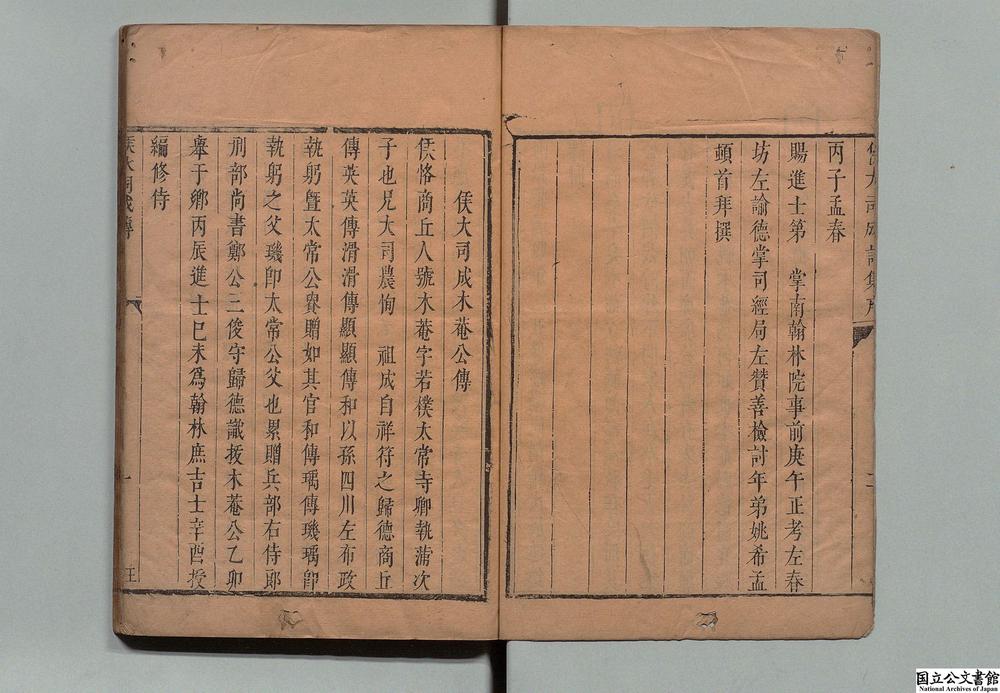 丙子孟春
賜進士第　掌南翰林院事前庚午正考左春
坊左諭德掌司經局左贊善檢討年弟姚希孟
頓首拜撰
侯大司成木菴公傳
侯恪商丘人號木菴字若樸太常寺卿執蒲次
子也兄大司農恂　祖成自祥符之歸德商丘
傳英英傳滑滑傳顯顯傳和以孫四川左布政
執躬暨太常公賚贈如其官和傳瑀傳璣瑀卽
執躬之父璣卽太常公父也累贈兵部右侍郎
刑部尚書鄭公三俊守歸德識拔木菴公乙卯
舉于鄉丙辰進士巳未爲翰林庶吉士辛酉授
編修侍
侯大司成傳
一
国立公文書館
National Archives of Japan